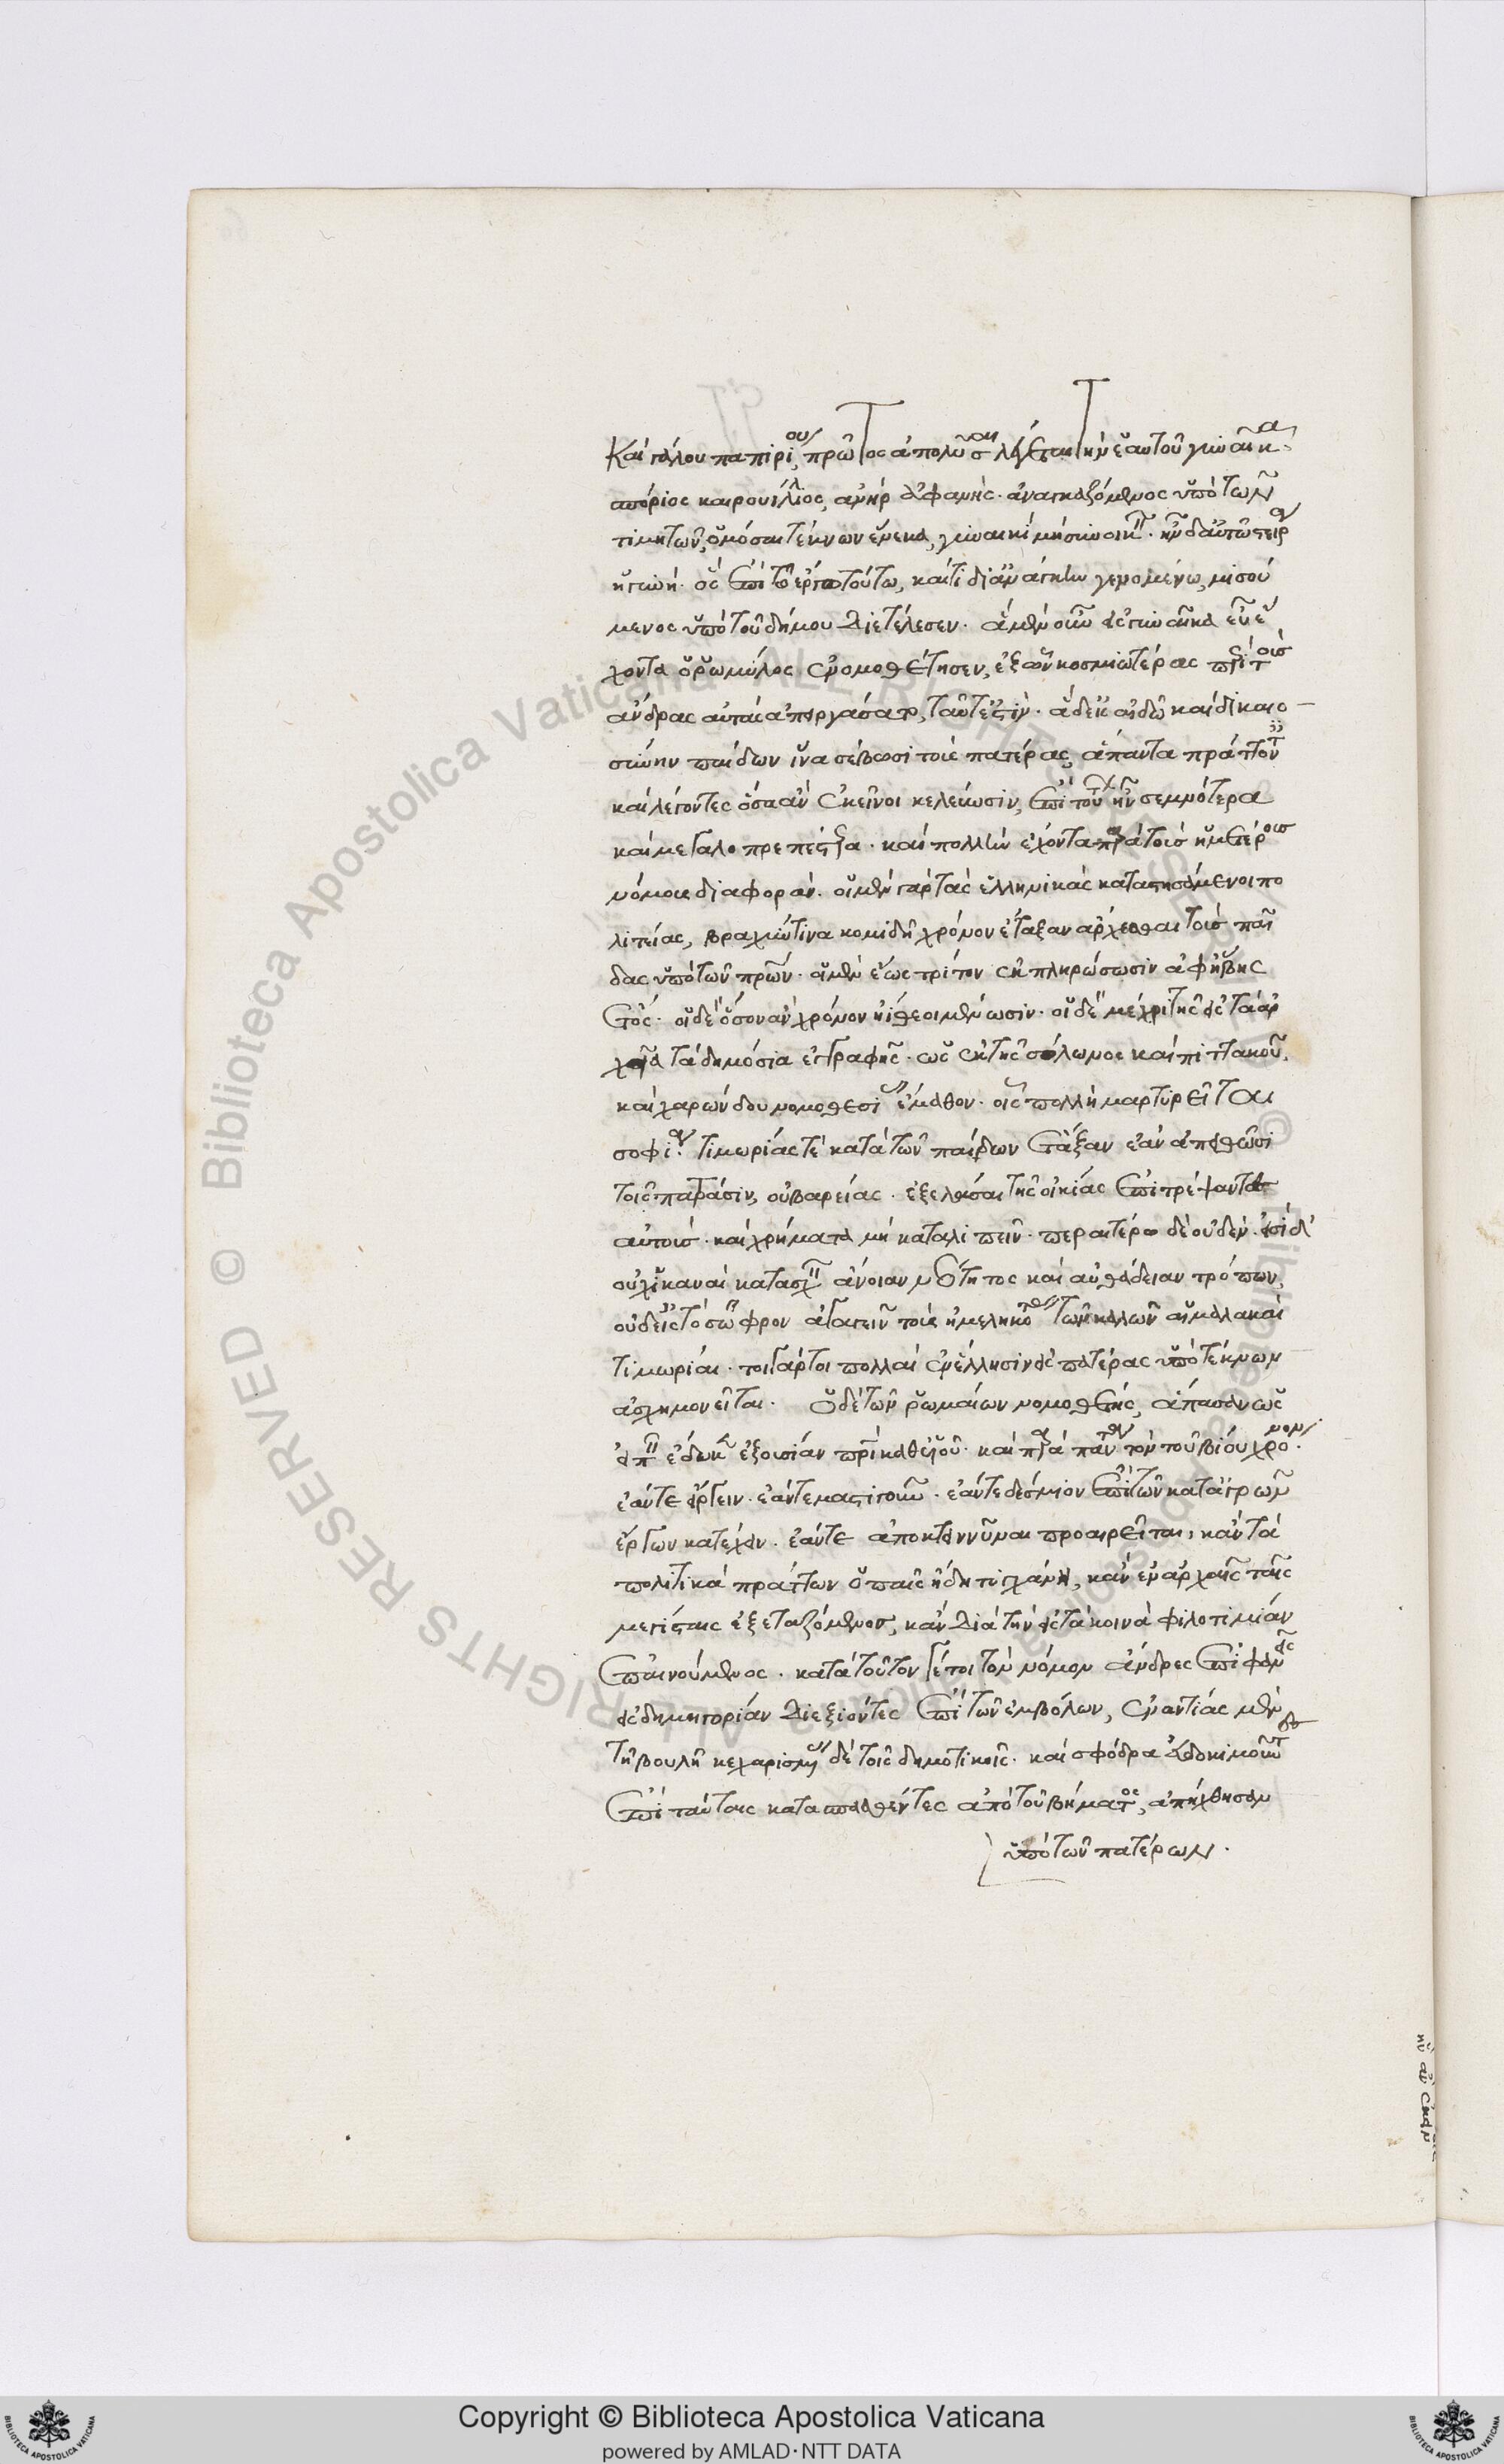 Καὶ γάλου παπιρίου, πρῶτος ἀπολῦσαι λέγεται τὴν ἑαυτοῦ γυναῖκα
σπόριος καρουίλλιος, ἀνὴρ ἀφανής. ἀναγκαζόμενος ὑπὸ τῶν
τιμητῶν, ὀμόσαι τέκνων ἕνεκα, γυναικὶ μὴ συνοικεῖν. ἦν δ' αὐτῷ στείρα
ἡ γυνή. ὃς ἐπὶ τῷ ἔργῳ τούτῳ, καίτι δι' ἀνάγκην γενομένῳ, μισού
μενος ὑπὸ τοῦ δήμου διετέλεσεν. ἃ μὲν οὖν εἰς γυναῖκα εὖ ἔ
χοντα ὁ ῥωμύλος ἐνομοθέτησεν, ἐξ ὧν κοσμιωτέρας περὶ τοὺς
ἄνδρας αὐτὰς ἀπειργάσατο, ταῦτ' ἐστίν. ἃ δ' εἰς αἰδῶ καὶ δικαιο
σύνην παίδων ἵνα σέβωσι τοὺς πατέρας, ἅπαντα πράττοντες
καὶ λέγοντες ὅσα ἂν ἐκεῖνοι κελεύωσιν, ἐπὶ τούτων ἦν σεμνότερα
καὶ μεγαλοπρεπέστερα. καὶ πολλὴν ἔχοντα παρὰ τοὺς ἡμετέρους
νόμους διαφοράν. οἱ μὲν γὰρ τὰς ἑλληνικὰς καταστησάμενοι πο
λιτείας, βραχύν τινα κομιδῆ χρόνον ἔταξαν ἄρχεσθαι τοὺς παῖ
δας ὑπὸ τῶν πατέρων. οἱ μὲν ἕως τρίτον ἐκπληρώσωσιν ἀφ' ἥβης
ἔτος. οἱ δὲ ὅσον ἂν χρόνον ἠΐθεοι μένωσιν. οἱ δὲ μέχρι τῆς εἰς τὰ ἀρ
χεῖα τὰ δημόσια ἐγγραφῆς. ὡς ἐκ τῆς σόλωνος καὶ πιττακοῦ,
καὶ χαρώνδου νομοθεσίας ἔμαθον. οἷς πολλὴ μαρτυρεῖται
σοφία. τιμωρίας τε κατὰ τῶν παίδων ἔταξαν ἐὰν ἀπειθῶσι
τοῖς πατράσιν, οὐ βαρείας. ἐξελάσαι τῆς οἰκίας ἐπιτρέψαντες
αὐτοῖς. καὶ χρήματα μὴ καταλιπεῖν. περαιτέρω δὲ οὐδέν. εἰσὶ δ'
οὐχ ἱκαναὶ κατασχεῖν ἄνοιαν νεότητος καὶ αὐθάδειαν τρόπων,
οὐδ' εἰς τὸ σῶφρον ἀγαγεῖν τοὺς ἠμεληκότας τῶν καλῶν αἱ μαλακαὶ
τιμωρίαι. τοιγάρτοι πολλαὶ ἐν ἕλλησιν εἰς πατέρας ὑπὸ τέκνων
ἀσχημονεῖται. ὁ δὲ τῶν ῥωμαίων νομοθέτης, ἅπασαν ὡς
εἰπεῖν ἔδωκεν ἐξουσίαν πατρὶ καθ' υἱοῦ. καὶ παρὰ πάντα τὸν τοῦ βίου χρόνον.
ἐάν τε εἴργειν. ἐάν τε μαστιγοῦν. ἐάν τε δέσμιον ἐπὶ τῶν κατ' ἀγρὸν
ἔργων κατέχειν. ἐάν τε ἀποκτιννῦναι προαιρεῖται, κἂν τὰ
πολιτικὰ πράττων ὁ παῖς ἤδη τυγχάνῃ, κἂν ἐν ἀρχαῖς ταῖς
μεγίσταις ἐξεταζόμενος, κἂν διὰ τὴν εἰς τὰ κοινὰ φιλοτιμίαν
ἐπαινούμενος. κατὰ τοῦτον γέτοι τὸν νόμον ἄνδρες ἐπιφανεῖς
εἰς δημηγορίαν διεξιόντες ἐπὶ τῶν ἐμβόλων, ἐναντίας μὲν
τῇ βουλῇ κεχαρισμένας δὲ τοῖς δημοτικοῖς. καὶ σφόδρα εὐδοκιμοῦντες
ἐπὶ ταύταις κατασπασθέντες ἀπὸ τοῦ βήματος, ἀπήχθησαν
ὑπὸ τῶν πατέρων.